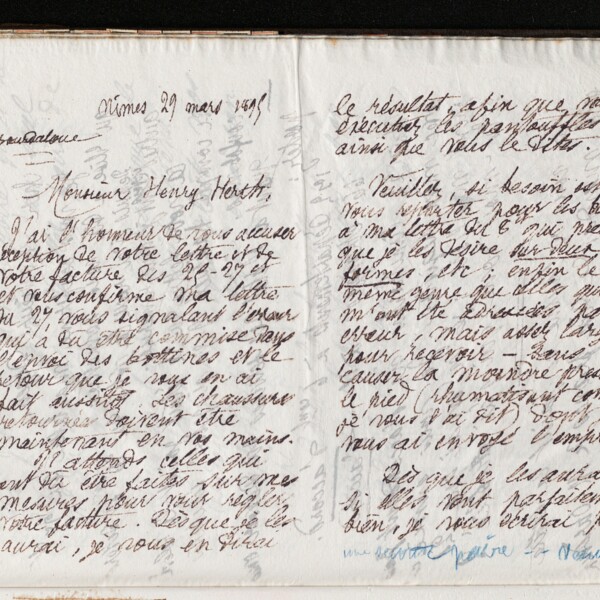 Nîmes 29 mars 1895
Bourdaloue
Monsieur Henry Herth,
J'ai l'honneur de vous accuser
réception de votre lettre et de
votre facture des 26-27 et
et vous confirme ma lettre
du 27, vous signalant l'erreur
qui a dû être commise dans
l'envoi des bottines et le
retour que je vous en ai
fait aussitôt. Les chaussures
retournées doivent être
maintenant en vos mains.
J'attends celles qui
ont dû être faites sur mes
mesures pour vous régler
votre facture. Dès que je les
aurai, je vous en dirai
le résultat, afin que
exécutiez les pantouffles
ainsi que vous le dites.
Veuillez, si besoin
vous reporter pour les
à ma lettre du 6 qui
que je les désire sur deux
formes, etc; enfin le
même genre que celles
m'ont été adressées
erreur, mais assez
pour recevoir – sans
causer la moindre
le pied (rhumatisant
je vous l'ai dit) dont
vous ai envoyé
Dès que je les aurai
si elles vont
bien, je vous écrirai
une seconde paire